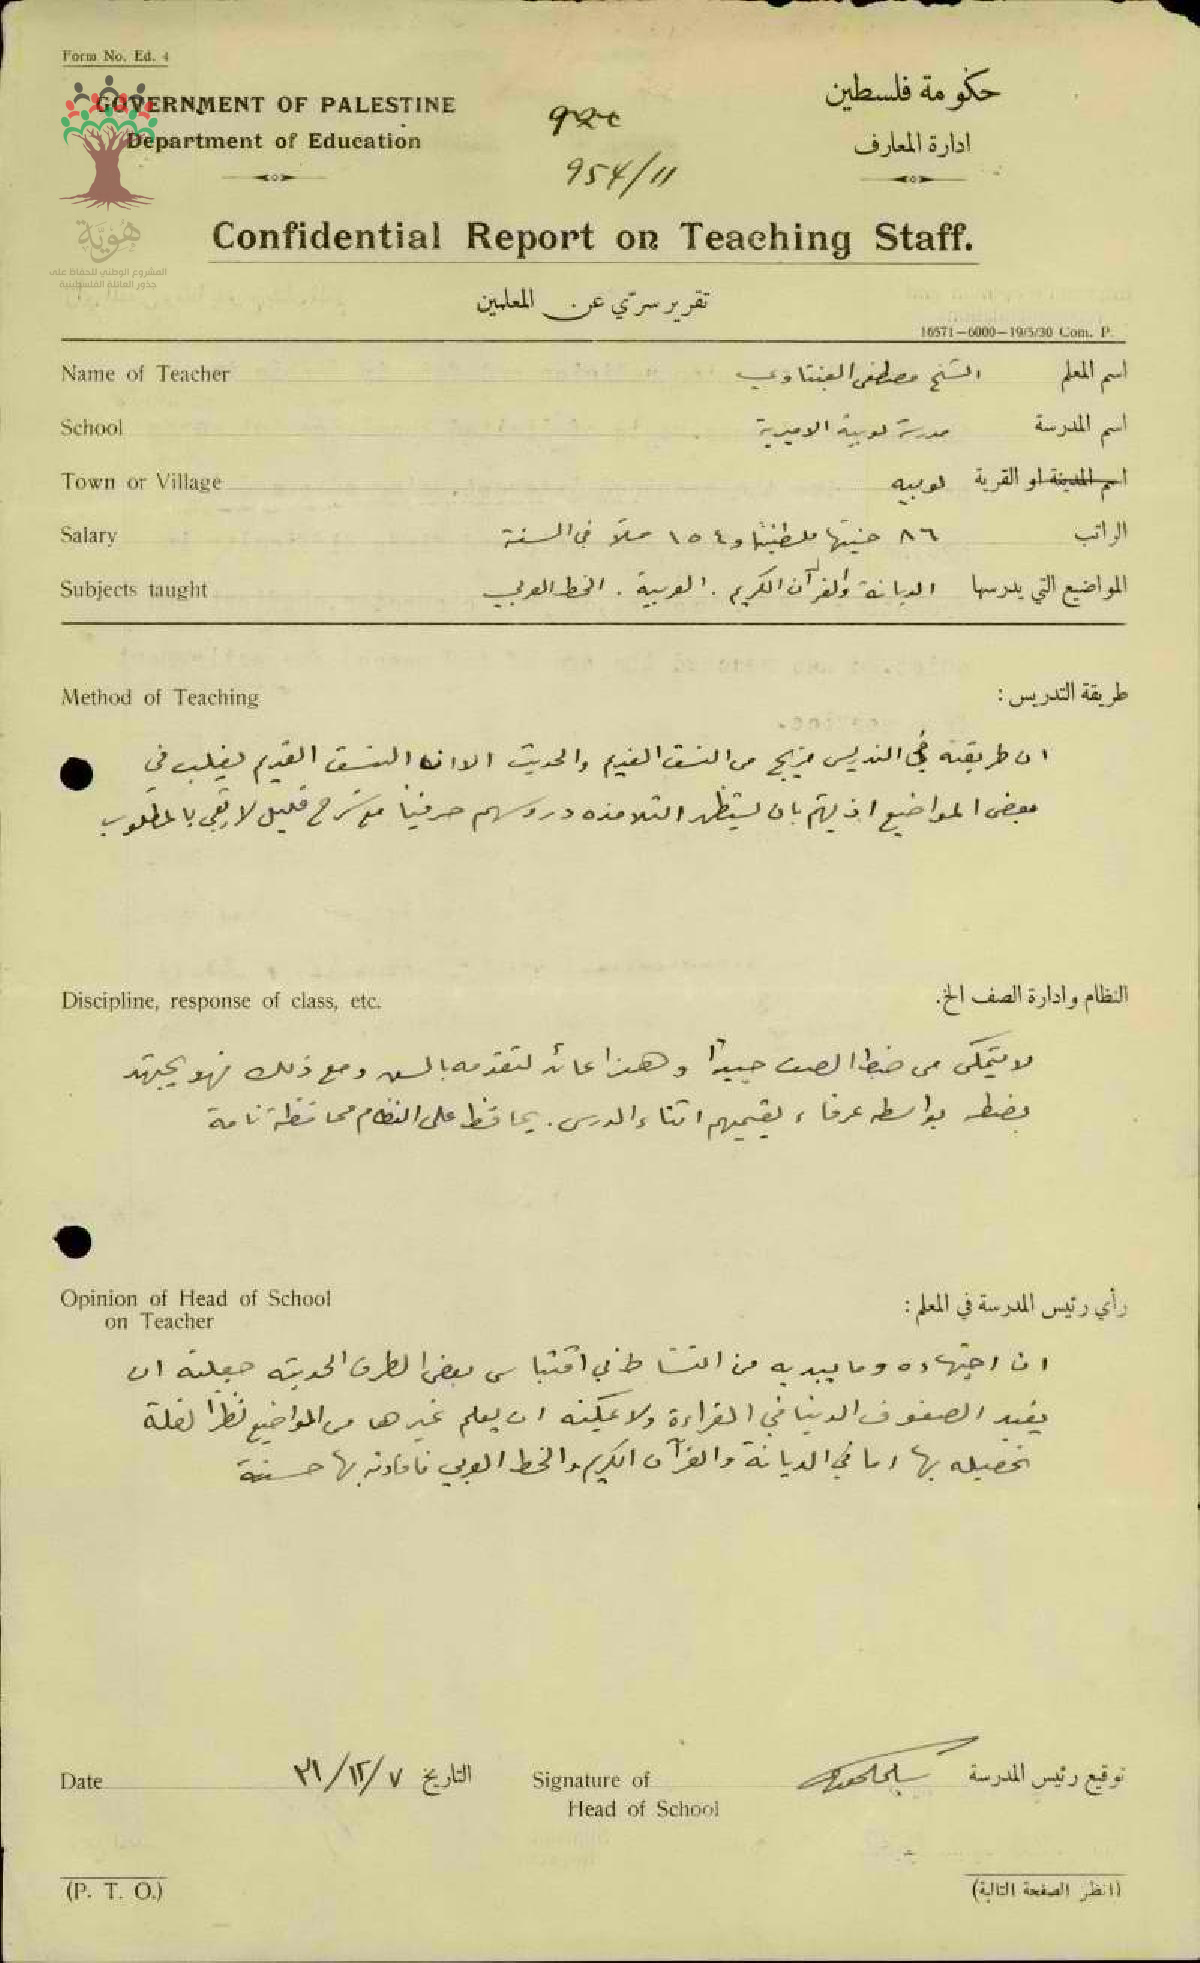 Form No. Ed. 4
GOVERNMENT OF PALESTINE
Department of Education
حكومة فلسطين
ادارة المعارف
954/11
هُوِيَّة
المشروع الوطني للحفاظ على
جذور العائلة الفلسطينية
Confidential Report on Teaching Staff.
تقرير سرّي عن المعلمين
16571—6000—19/5/30 Com. P.
Name of Teacher الشيخ مصطفى اسم المعلم
School مدرسة لوبية الاميرية اسم المدرسة
Town or Village لوبيه اسم المدينة او القرية
Salary ٨٦ جنيها فلسطينيا و ١٥٤ ملاً في السنة الراتب
Subjects taught الديانة والقرآن الكريم . العربية . الخط العربي المواضيع التي يدرسها
Method of Teaching طريقة التدريس :
ان طريقته في التدريس مزيج من النسق القديم والحديث الا ان النسق القديم يغلب في
بعض المواضيع اذ يهتم بان يستظهر التلامذه دروسهم حرفياً مع شرح قليل لا يفي بالمطلوب
Discipline, response of class, etc. النظام وادارة الصف الخ.
لا يتمكن من ضبط الصف جيداً وهذا عائد لتقدمه بالسن ومع ذلك فهو يجتهد
بضبطه بواسطه عرفاء يقيمهم اثناء الدرس . يحافظ على النظام محافظة تامة
Opinion of Head of School
on Teacher
رأي رئيس المدرسة في المعلم :
ان اجتهاده وما يبديه من النشاط في اقتباس بعض الطرق الحديثه جعلته ان
يفيد الصفوف الدنيا في القراءة ولا يمكنه ان يعلم غيرها من المواضيع نظراً لقلة
تحصيله بها اما في الديانة والقرآن الكريم والخط العربي فافادته بها حسنة
Date ٣١/١٢/٧ التاريخ
Signature of
Head of School
توقيع رئيس المدرسة
(P. T. O.)
(انظر الصفحة التالية)